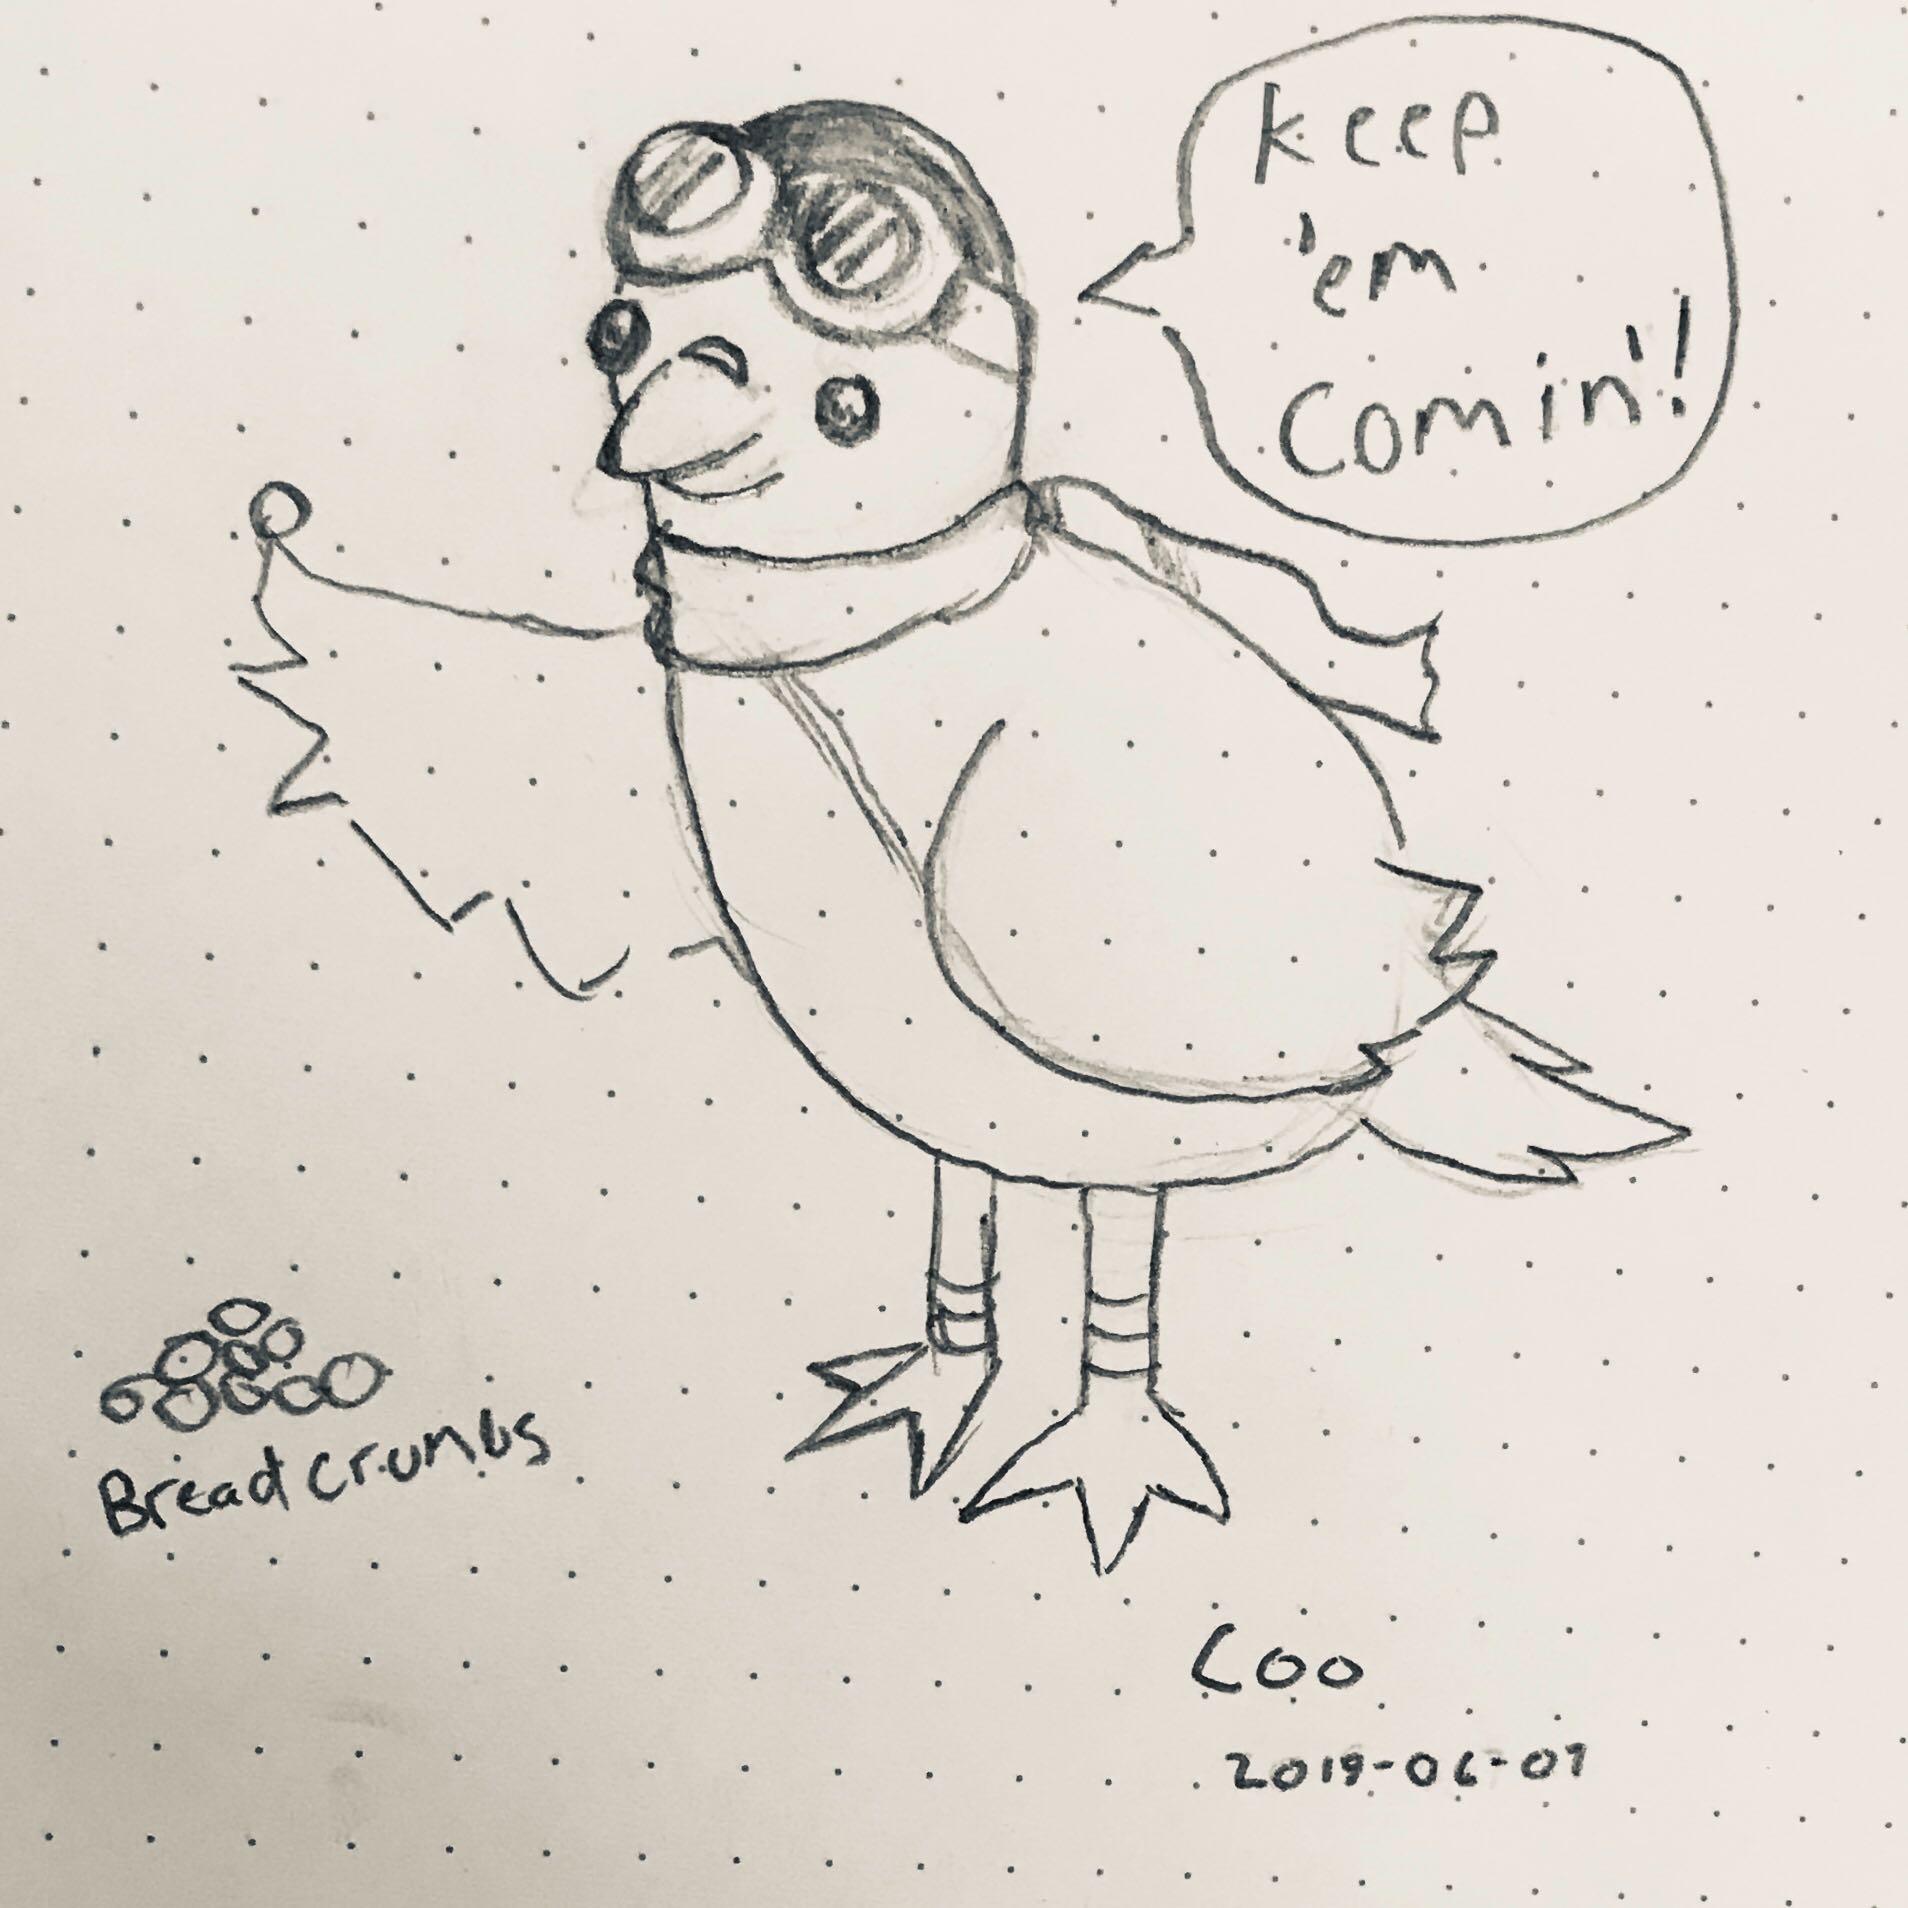 Keep
'em
Comin'!
Bread crumbs
Coo
2019-06-07